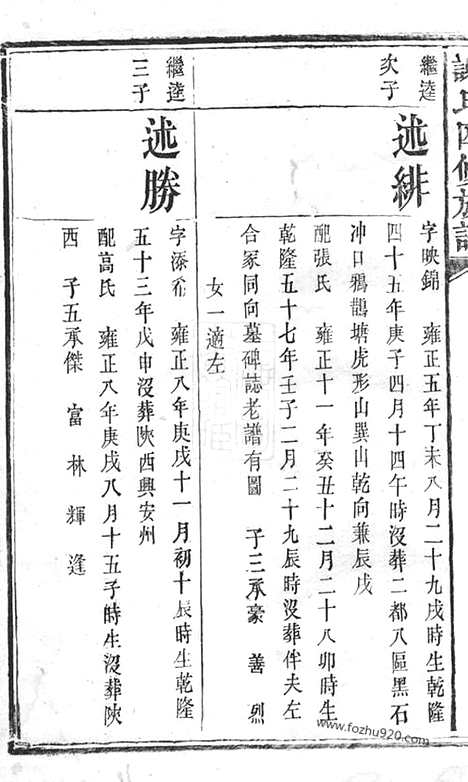 氏四修族譜
繼逵
次子
述緋
字映錦 雍正五年丁未八月二十九戌時生乾隆
四十五年庚子四月十四午時沒葬二都八區黑石
冲口鴉鵲塘虎形山巽山乾向兼辰戌
配張氏 雍正十一年癸丑十二月二十八卯時生
乾隆五十七年壬子二月二十九辰時沒葬伴夫左
合冢同向墓碑誌老譜有圖 子三承豪 善 烈
女一適左
繼逵
三子
述勝
字添希 雍正八年庚戌十一月初十辰時生乾隆
五十三年戊申沒葬陝西興安州
配高氏 雍正八年庚戌八月十五子時生沒葬陝
西 子五承傑 富 林 輝 逢
www.fozhu920.com